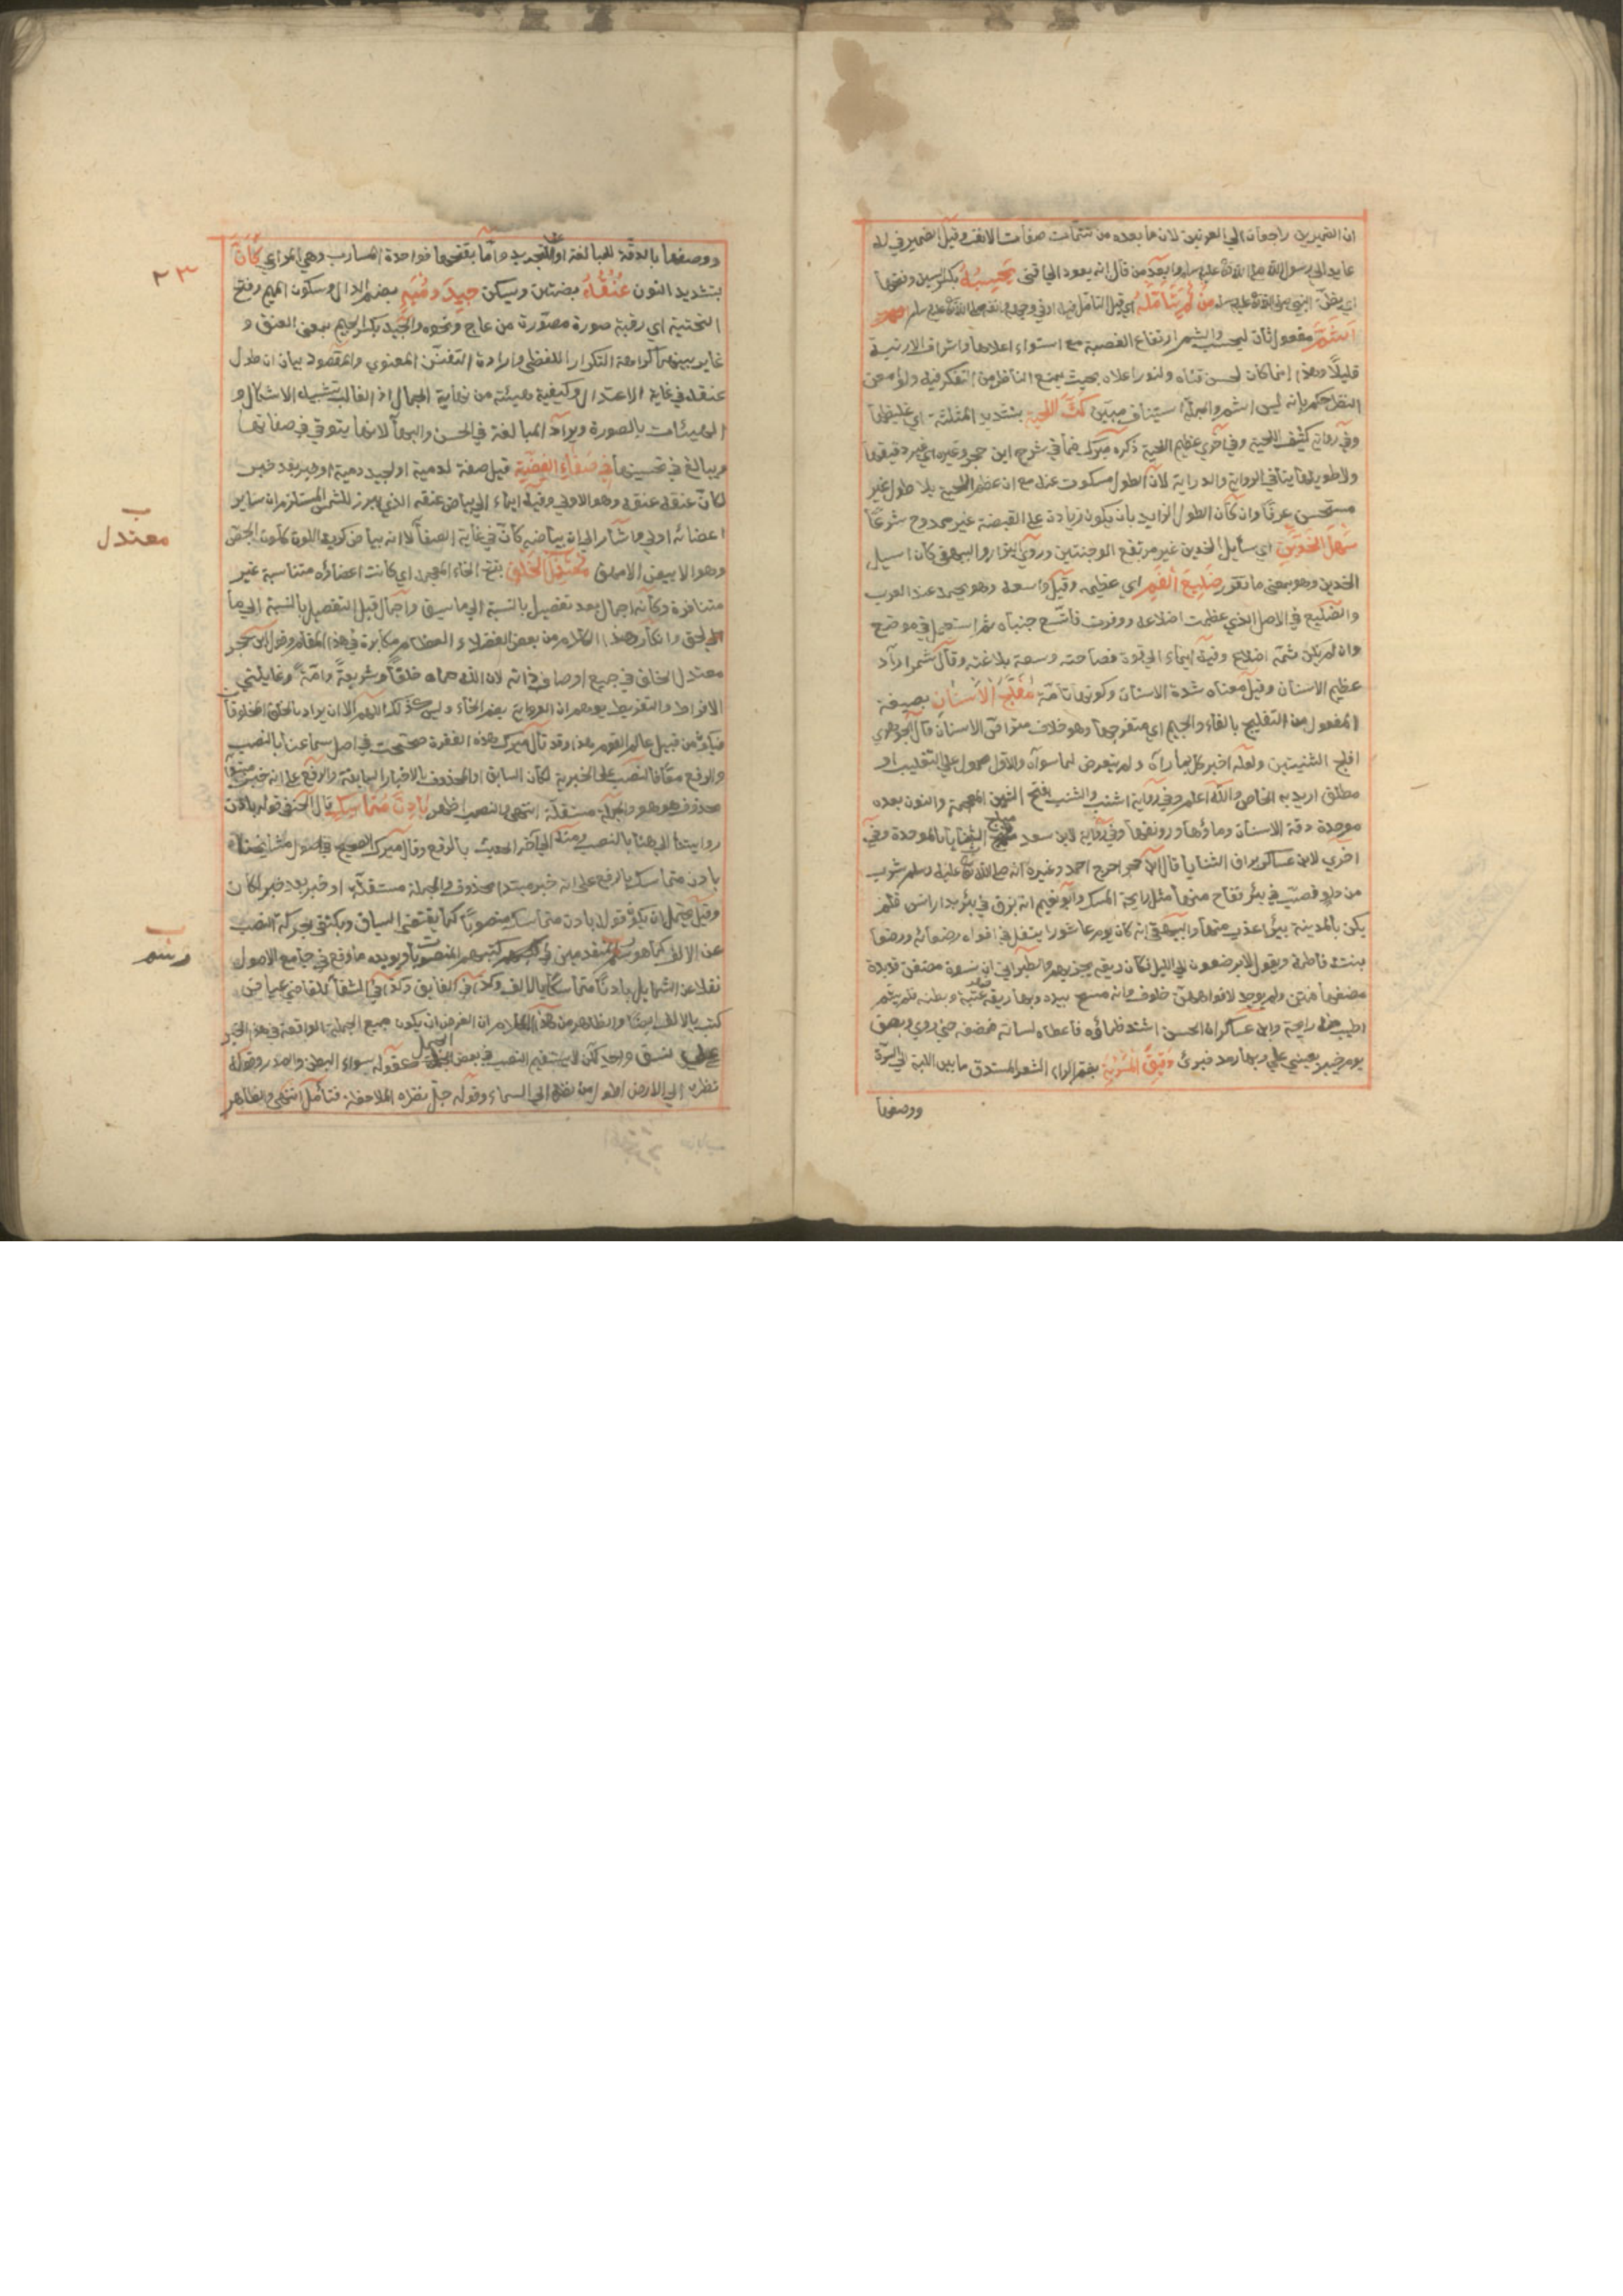 ان الضميرين راجعان الي العرنين لان ما بعده من تتمات صفات الانف وقيل الضمير في له
عايد الي رسول الله صلى الله تعالى عليه وسلم وابعد من قال انه يعود الي اقنى يحسبه بكسر السين وفتحها
اي يظن النبي صلى الله تعالى عليه وسلم من لم يتأمله اي قبل التأمل فيه
اشم مفعول ثان ليحسب والشمم ارتفاع القصبة مع استواء اعلاها واشراف الارنبة
قليلا وهذا انما كان لحسن قناه ولنور اعلاه بحيث يمنع الناظر من التفكر فيه ولو امعن
النظر لحكم بانه ليس اشم والجملة استيناف مبين كث اللحية بتشديد المثلثة اي غليظها
وفي رواية كثيف اللحية وفي اخرى عظيم اللحية ذكره ميرك فما في شرح ابن حجر وغيره اي غير دقيقها
ولا طويلها ينافي الرواية والدراية لان الطول مسكوت عنه مع ان عظم اللحية بلا طول غير
مستحسن عرفا وان كان الطول الزايد بان يكون زيادة على القبضة غير ممدوح شرعا
سهل الخدين اي سايل الخدين غير مرتفع الوجنتين وروى البزار والبيهقي كان اسيل
الخدين وهو بمعنى ما تقرر ضليع الفم اي عظيمه وقيل واسعه وهو يحمد عند العرب
والضليع في الاصل الذي عظمت اضلاعه ووفرت فاتسع جنباه ثم استعمل في موضع
وان لم يكن ثمة اضلاع وفيه ايماء الي قوة فصاحته وسعة بلاغته وقال شمر اراد
عظيم الاسنان وقيل معناه شدة الاسنان وكونها تامة مفلج الاسنان بصيغة
المفعول من التفليج بالفاء والجيم اي منفرجها وهو خلاف متراص الاسنان قال الجوهري
افلج الثنيتين ولعله اخبر كل بما رآه ولم يتعرض لما سواه والاول محمول علي التغليب او
مطلق اريد به الخاص والله اعلم وفي رواية اشنب والشنب بفتح الشين المعجمة والنون بعده
موحدة دقة الاسنان وماؤها ورونقها وفي رواية لابن سعد مبلج الثنايا بالموحدة وفي
اخري لابن عساكر براق الثنايا قال ابن حجر اخرج احمد وغيره انه صلى الله تعالى عليه وسلم شرب
من دلو فصب في بئر ففاح منها مثل رايحة المسك وابو نعيم انه بزق في بئر بدار انس فلم
يكن بالمدينة بئر اعذب منها والبيهقي انه كان يوم عاشورا يتفل في افواه رضعائه ورضعا
بنته فاطمة ويقول لا يرضعون الي الليل فكان ريقه يجزيهم والطبراني ان نسوة مضغن قديدة
مضغها فمتن ولم يوجد لافواههن خلوف وانه مسح بيده وبها ريقه عتبة وبطنه فلم يشم
اطيب منه رايحة وابن عساكر ان الحسن اشتد ظمأوه فاعطاه لسانه فمصه حتى روي وبصق
يوم خيبر بعيني علي وبهما رمد فبرئ دقيق المسربة بضم الراء الشعر المستدق ما بين اللبة الي السرة
ووصفها
ووصفها بالدقة للمبالغة او للتجريد واما بفتحها فواحدة المسارب وهي المراعي كأن
٢٣
بتشديد النون عنقه بضمتين ويسكن جيد دمية بضم الدال وسكون الميم وفتح
التحتية اي رقبة صورة مصورة من عاج ونحوه والجيد بكسر الجيم بمعنى العنق و
غاير بينهما كراهة التكرار اللفظي وارادة التفنن المعنوي والمقصود بيان ان طول
عنقه في غاية الاعتدال وكيفية هيئته من نهاية الجمال اذ الغالب تشبيه الاشكال و
الهيئات بالصورة ويراد المبالغة في الحسن والبهاء لانها يتوقى في صفاتها
ويبالغ في تحسينها في صفاء الفضة قيل صفة لدمية او لجيد دمية او خبر بعد خبر
لكان عنقه عنقه وهو الاولي وفيه ايماء الي بياض عنقه الذي يبرز للشمس المستلزم ان ساير
اعضائه اولي واشار الي ان بياضه كان في غاية الصفاء لا انه بياض كريه اللون كلون الجص
معتدل
وهو الابيض الامهق معتدل الخلق بفتح الخاء المعجمة اي كانت اعضاؤه متناسبة غير
متنافرة وكأنه اجمال بعد تفصيل بالنسبة الي ما سبق واجمال قبل التفصيل بالنسبة الي ما
لحق وانكار هذا الكلام من بعض الفضلاء العظام مكابرة في هذا المقام وقول ابن حجر
معتدل الخلق في جميع اوصاف ذاته لان الله حماه خلقا وشريعة وامة وغايلتي
الافراط والتفريط يوهم ان الرواية بضم الخاء وليس كذلك اللهم الا ان يراد بالخلق المخلوقات
فيكون من قبيل عالم القوم هذا وقد قال ميرك هذه الفقرة صححت في اصل سماعنا بالنصب
والرفع معا فالنصب على الخبرية لكان السابق او المحذوف بالاخبار السابقة والرفع على انه خبر مبتدأ
محذوف هو هو والجملة مستقلة انتهى والنصب اظهر بادن متماسك قال الحنفي قوله بادن
روايتنا الي هنا بالنصب ومنه الي آخر الحديث بالرفع وقال ميرك الصحيح في اصول مشايخنا
بادن متماسك بالرفع على انه خبر مبتدا محذوف والجملة مستقلة او خبر بعد خبر لكان
وقيل يحتمل ان يكون قوله بادن متماسك منصوبا كما يقتضي السياق ويكتفى بحركة النصب
عن الالف كما هو رسم المتقدمين في كتبهم المنصوب ويؤيده ما وقع في جامع الاصول
رسم
نقلا عن الشمايل بادنا متماسكا بالالف وكذا في الفايق وكذا في الشفاء للقاضي عياض
كتب بالالف ايضا والظاهر من هذا الكلام ان الغرض ان يكون جميع الجملة الواقعة في هذا الخبر
علي نسق واحد لكن لا يستقيم النصب في بعض الجمل كقوله سواء البطن والصدر وقوله
نظره الي الارض اطول من نظره الي السماء وقوله جل نظره الملاحظة فتأمل انتهى والظاهر